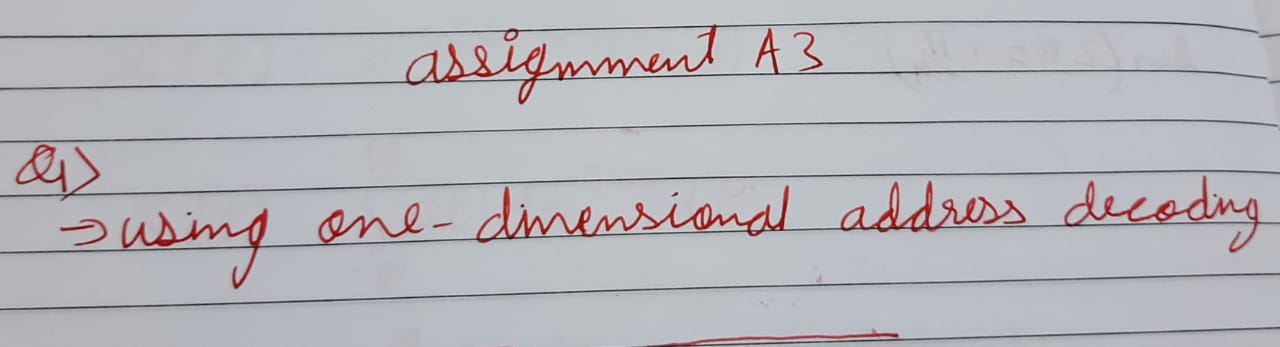 assignment A3
Q1>
→ using one-dimensional address decoding